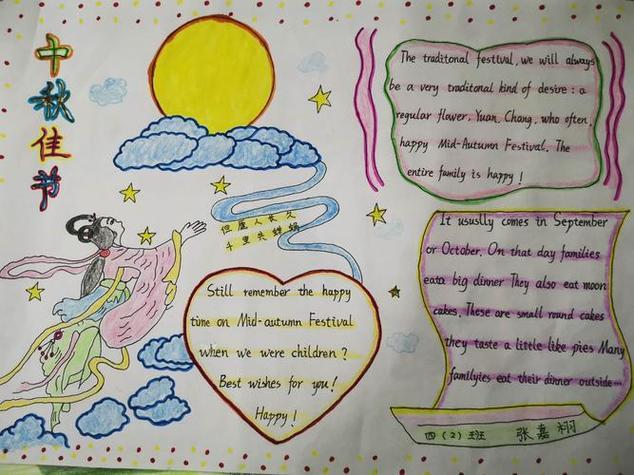 中秋佳节
The traditonal festival, we will always
be a very traditonal kind of desire: a
regular flower, Yuan, Chang, who often,
happy Mid-Autumn Festival. The
entire family is happy!
但愿人长久
千里共婵娟
It ususlly comes in September
or October. On that day families
eata big dinner They also eat moon
cakes. Those are small round cakes
they taste a little like pies Many
familyies eat their dinner outside…
Still remember the happy
time on Mid-autumn Festival
when we were children?
Best wishes for you!
Happy!
四(2)班 张嘉栩